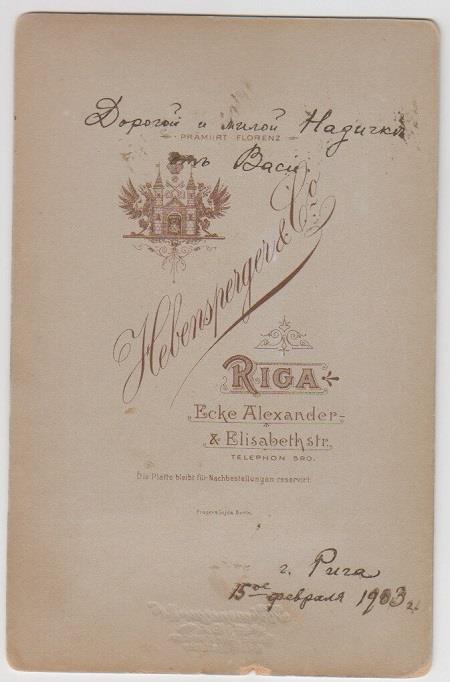 Дорогой и милой Надички
PRÄMIIRT FLORENZ
отъ Васи
Hebensperger & Co
RIGA
Ecke Alexander-
& Elisabethstr.
TELEPHON 590.
Die Platte bleibt für Nachbestellungen reservirt.
г. Рига
15ое февраля 1903 г.